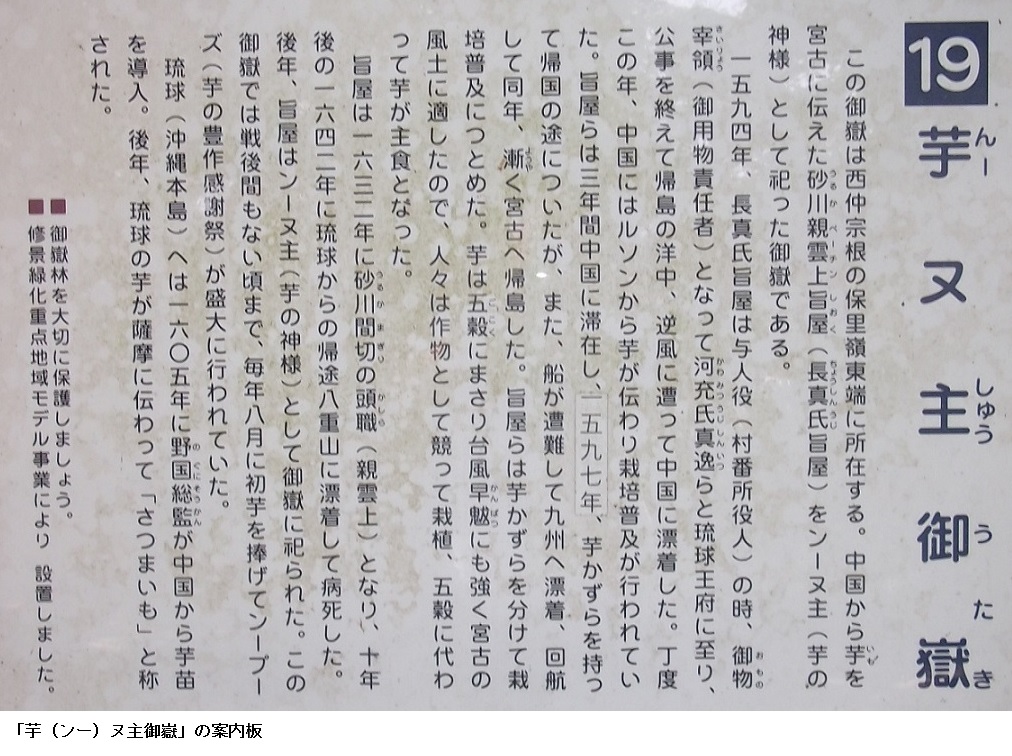 19 芋ヌ主御嶽
んー しゅう うたき
この御嶽は西仲宗根の保里嶺東端に所在する。中国から芋を
宮古に伝えた砂川親雲上旨屋（長真氏旨屋）をンーヌ主（芋の
神様）として祀った御嶽である。
一五九四年、長真氏旨屋は与人役（村番所役人）の時、御物
宰領（御用物責任者）となって河充氏真逸らと琉球王府に至り、
公事を終えて帰島の洋中、逆風に遭って中国に漂着した。丁度
この年、中国にはルソンから芋が伝わり栽培普及が行われてい
た。旨屋らは三年間中国に滞在し、一五九七年、芋かずらを持っ
て帰国の途についたが、また、船が遭難して九州へ漂着、回航
して同年、漸く宮古へ帰島した。旨屋らは芋かずらを分けて栽
培普及につとめた。芋は五穀にまさり台風旱魃にも強く宮古の
風土に適したので、人々は作物として競って栽植、五穀に代わ
って芋が主食となった。
旨屋は一六三二年に砂川間切の頭職（親雲上）となり、十年
後の一六四二年に琉球からの帰途八重山に漂着して病死した。
後年、旨屋はンーヌ主（芋の神様）として御嶽に祀られた。この
御嶽では戦後間もない頃まで、毎年八月に初芋を捧げてンープー
ズ（芋の豊作感謝祭）が盛大に行われていた。
琉球（沖縄本島）へは一六〇五年に野国総監が中国から芋苗
を導入。後年、琉球の芋が薩摩に伝わって「さつまいも」と称
された。
■御嶽林を大切に保護しましょう。
■修景緑化重点地域モデル事業により 設置しました。
「芋（ンー）ヌ主御嶽」の案内板